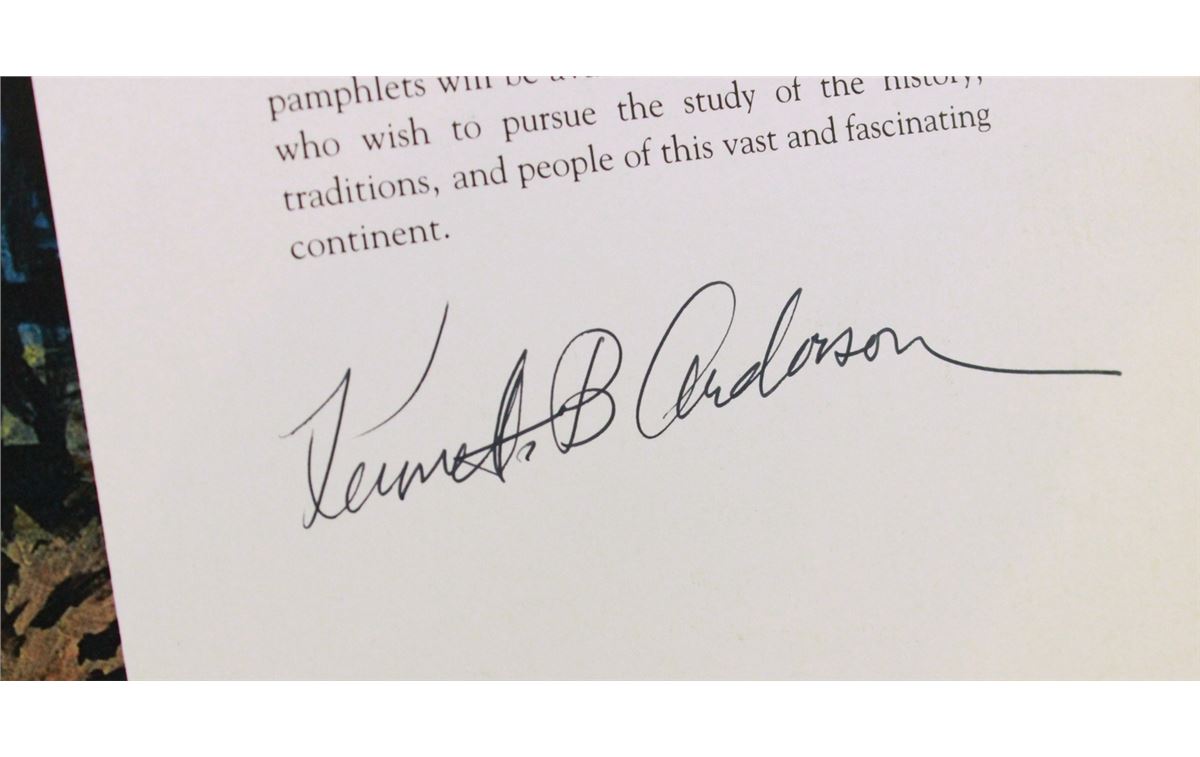 pamphlets will be
who wish to pursue the study of the history,
traditions, and people of this vast and fascinating
continent.
Kenneth B Anderson